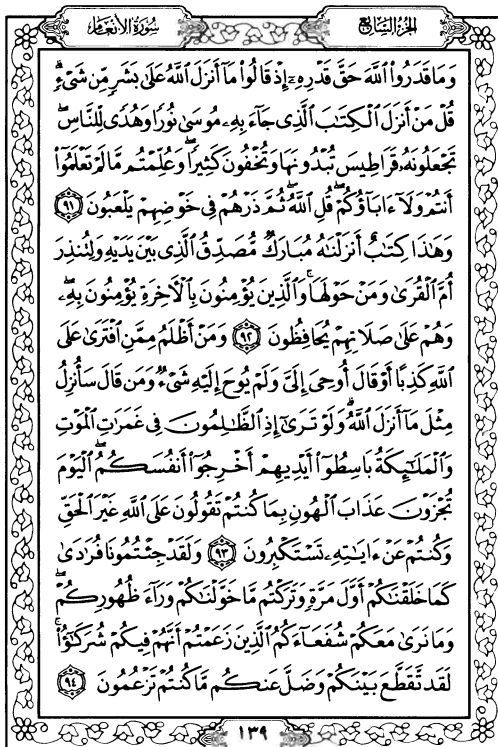 سُورَةُ الأَنْعَام
الجُزْءُ السَّابِع
وَمَا قَدَرُوا۟ ٱللَّهَ حَقَّ قَدْرِهِۦٓ إِذْ قَالُوا۟ مَآ أَنزَلَ ٱللَّهُ عَلَىٰ بَشَرٍ مِّن شَىْءٍ ۗ
قُلْ مَنْ أَنزَلَ ٱلْكِتَـٰبَ ٱلَّذِى جَآءَ بِهِۦ مُوسَىٰ نُورًا وَهُدًى لِّلنَّاسِ ۖ
تَجْعَلُونَهُۥ قَرَاطِيسَ تُبْدُونَهَا وَتُخْفُونَ كَثِيرًا ۖ وَعُلِّمْتُم مَّا لَمْ تَعْلَمُوٓا۟
أَنتُمْ وَلَآ ءَابَآؤُكُمْ ۖ قُلِ ٱللَّهُ ۖ ثُمَّ ذَرْهُمْ فِى خَوْضِهِمْ يَلْعَبُونَ ٩١
وَهَـٰذَا كِتَـٰبٌ أَنزَلْنَـٰهُ مُبَارَكٌ مُّصَدِّقُ ٱلَّذِى بَيْنَ يَدَيْهِ وَلِتُنذِرَ
أُمَّ ٱلْقُرَىٰ وَمَنْ حَوْلَهَا ۚ وَٱلَّذِينَ يُؤْمِنُونَ بِٱلْـَٔاخِرَةِ يُؤْمِنُونَ بِهِۦ ۖ
وَهُمْ عَلَىٰ صَلَاتِهِمْ يُحَافِظُونَ ٩٢ وَمَنْ أَظْلَمُ مِمَّنِ ٱفْتَرَىٰ عَلَى
ٱللَّهِ كَذِبًا أَوْ قَالَ أُوحِىَ إِلَىَّ وَلَمْ يُوحَ إِلَيْهِ شَىْءٌ وَمَن قَالَ سَأُنزِلُ
مِثْلَ مَآ أَنزَلَ ٱللَّهُ ۗ وَلَوْ تَرَىٰٓ إِذِ ٱلظَّـٰلِمُونَ فِى غَمَرَٰتِ ٱلْمَوْتِ
وَٱلْمَلَـٰٓئِكَةُ بَاسِطُوٓا۟ أَيْدِيهِمْ أَخْرِجُوٓا۟ أَنفُسَكُمُ ۖ ٱلْيَوْمَ
تُجْزَوْنَ عَذَابَ ٱلْهُونِ بِمَا كُنتُمْ تَقُولُونَ عَلَى ٱللَّهِ غَيْرَ ٱلْحَقِّ
وَكُنتُمْ عَنْ ءَايَـٰتِهِۦ تَسْتَكْبِرُونَ ٩٣ وَلَقَدْ جِئْتُمُونَا فُرَٰدَىٰ
كَمَا خَلَقْنَـٰكُمْ أَوَّلَ مَرَّةٍ وَتَرَكْتُم مَّا خَوَّلْنَـٰكُمْ وَرَآءَ ظُهُورِكُمْ ۖ
وَمَا نَرَىٰ مَعَكُمْ شُفَعَآءَكُمُ ٱلَّذِينَ زَعَمْتُمْ أَنَّهُمْ فِيكُمْ شُرَكَـٰٓؤُا۟ ۚ
لَقَد تَّقَطَّعَ بَيْنَكُمْ وَضَلَّ عَنكُم مَّا كُنتُمْ تَزْعُمُونَ ٩٤
١٣٩